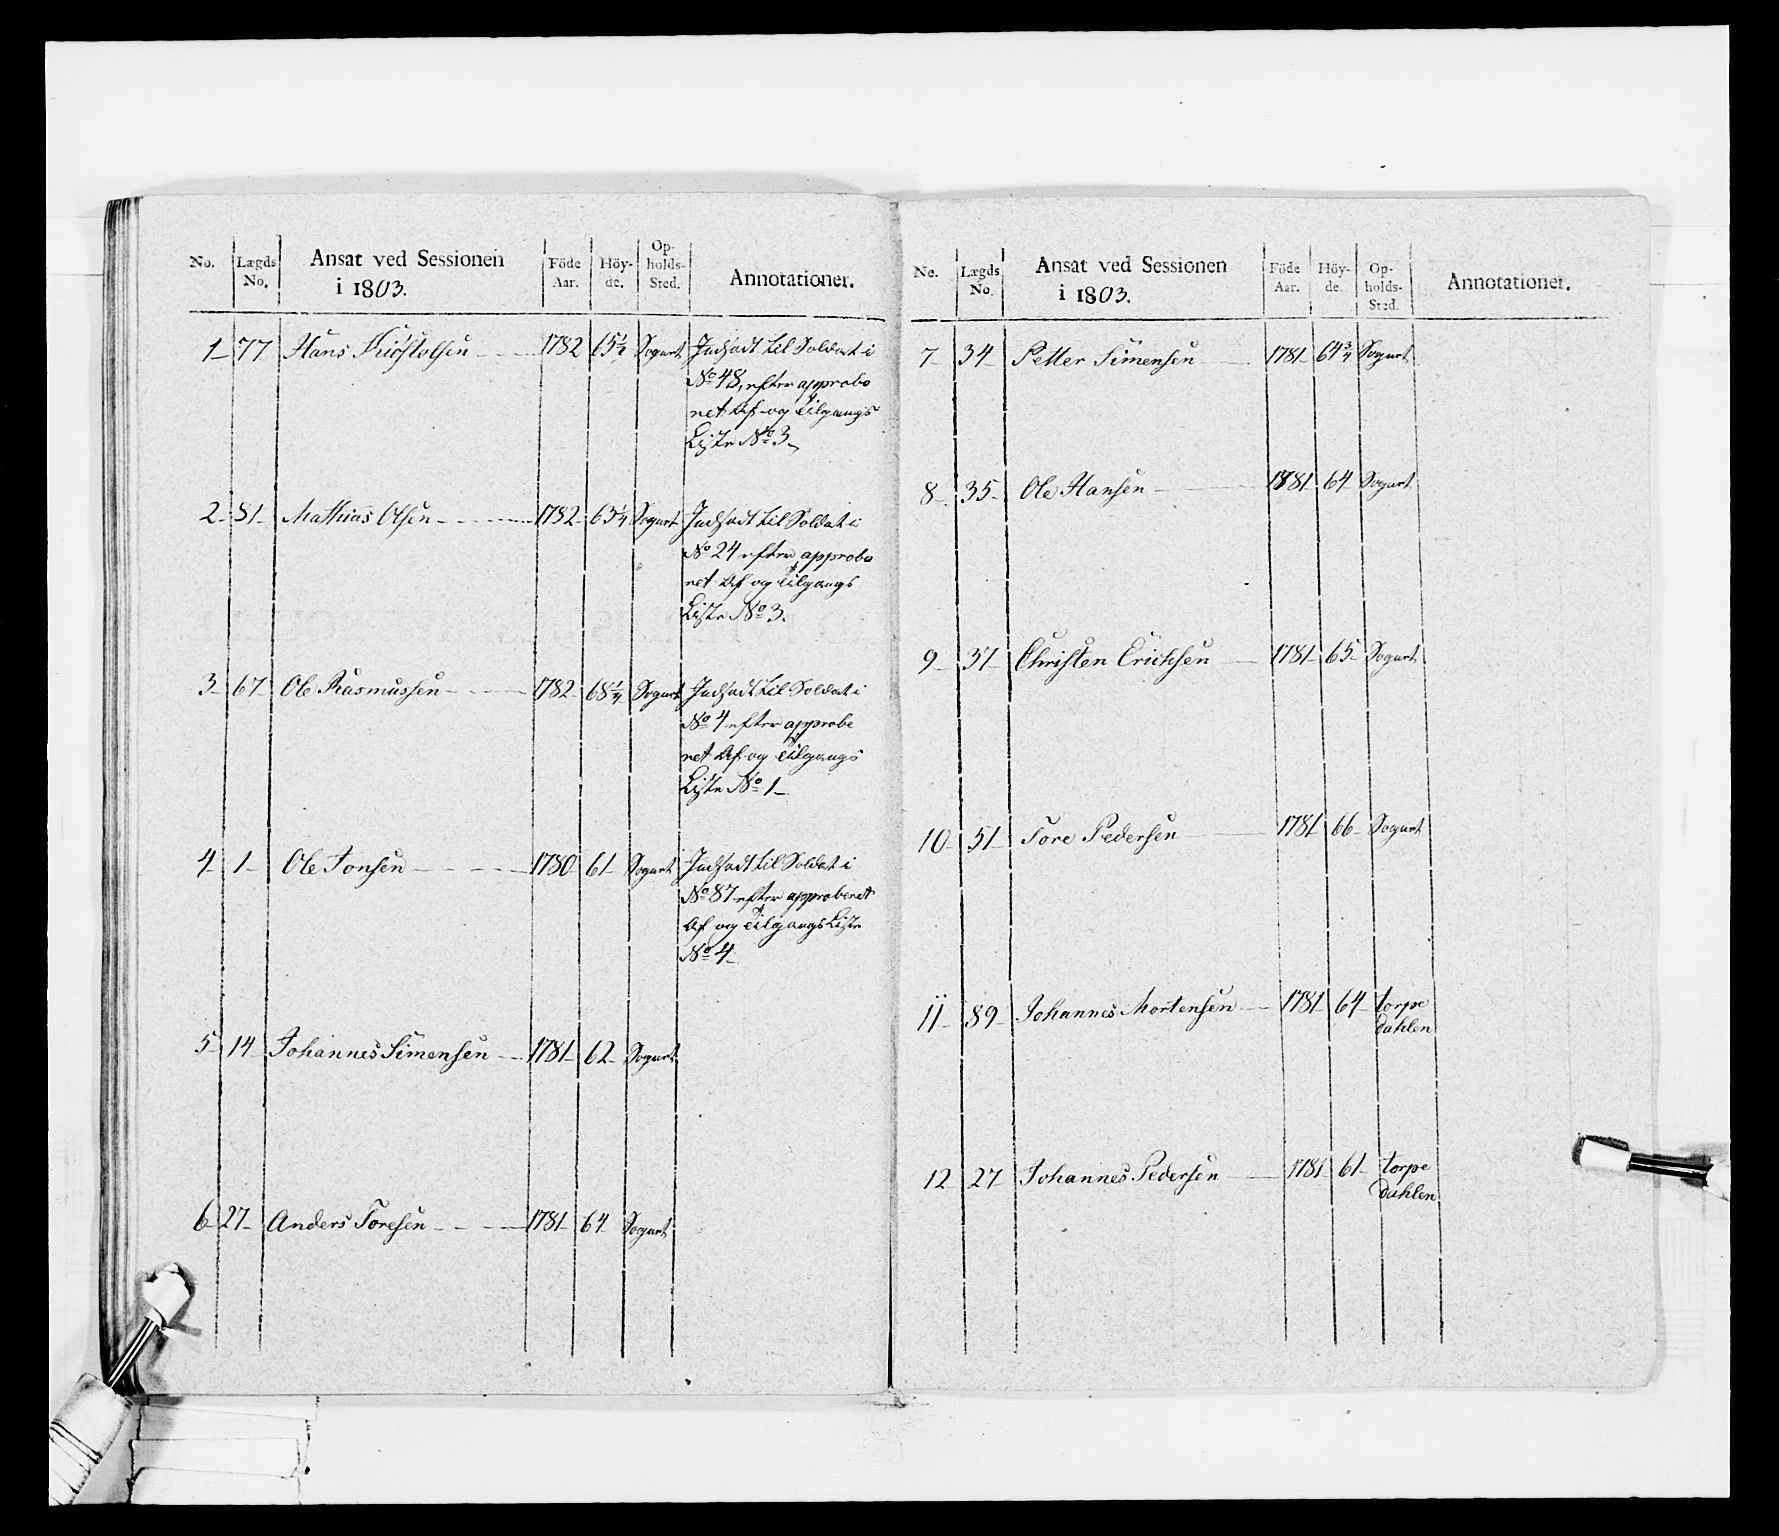 No. | Lægds No. | Ansat ved Sessionen i 1803. | Föde Aar. | Höy-de. | Op-holds-Sted. | Annotationer.
1 77 Hans 1782 65½ Sogart Indsadt til Soldat i
No 48, efter approbe
net Af- og Tilgangs
Liste No 3
2 81 Mathias Olsen 1782 63¼ Sogart Indsadt til Soldat i
No 24 efter approbe
net Af og Tilgangs
Liste No 3.
3 67 Ole Rasmussen 1782 68¼ Sogart Indsadt til Soldat i
No 4 efter approbe
net Af- og Tilgangs
Liste No 1
4 1 Ole Tonsen 1780 61 Sogart Indsadt til Soldat i
No 87 efter approberet
Af og Tilgangs Liste
No 4
5 14 Johannes Simensen 1781 62 Sogart
6 27 Anders Toresen 1781 64 Sogart
No. | Lægds No. | Ansat ved Sessionen i 1803. | Föde Aar. | Höy-de. | Op-holds-Sted. | Annotationer.
7 34 Petter Simensen 1781 64¾ Sogart
8 35 Ole Hansen 1781 64 Sogart
9 37 Christen Erichsen 1781 65 Sogart
10 51 Tore Pedersen 1781 66 Sogart
11 89 Johannes Mortensen 1781 64 torpe
dahlen
12 27 Johannes Pedersen 1781 61 torpe
dahlen